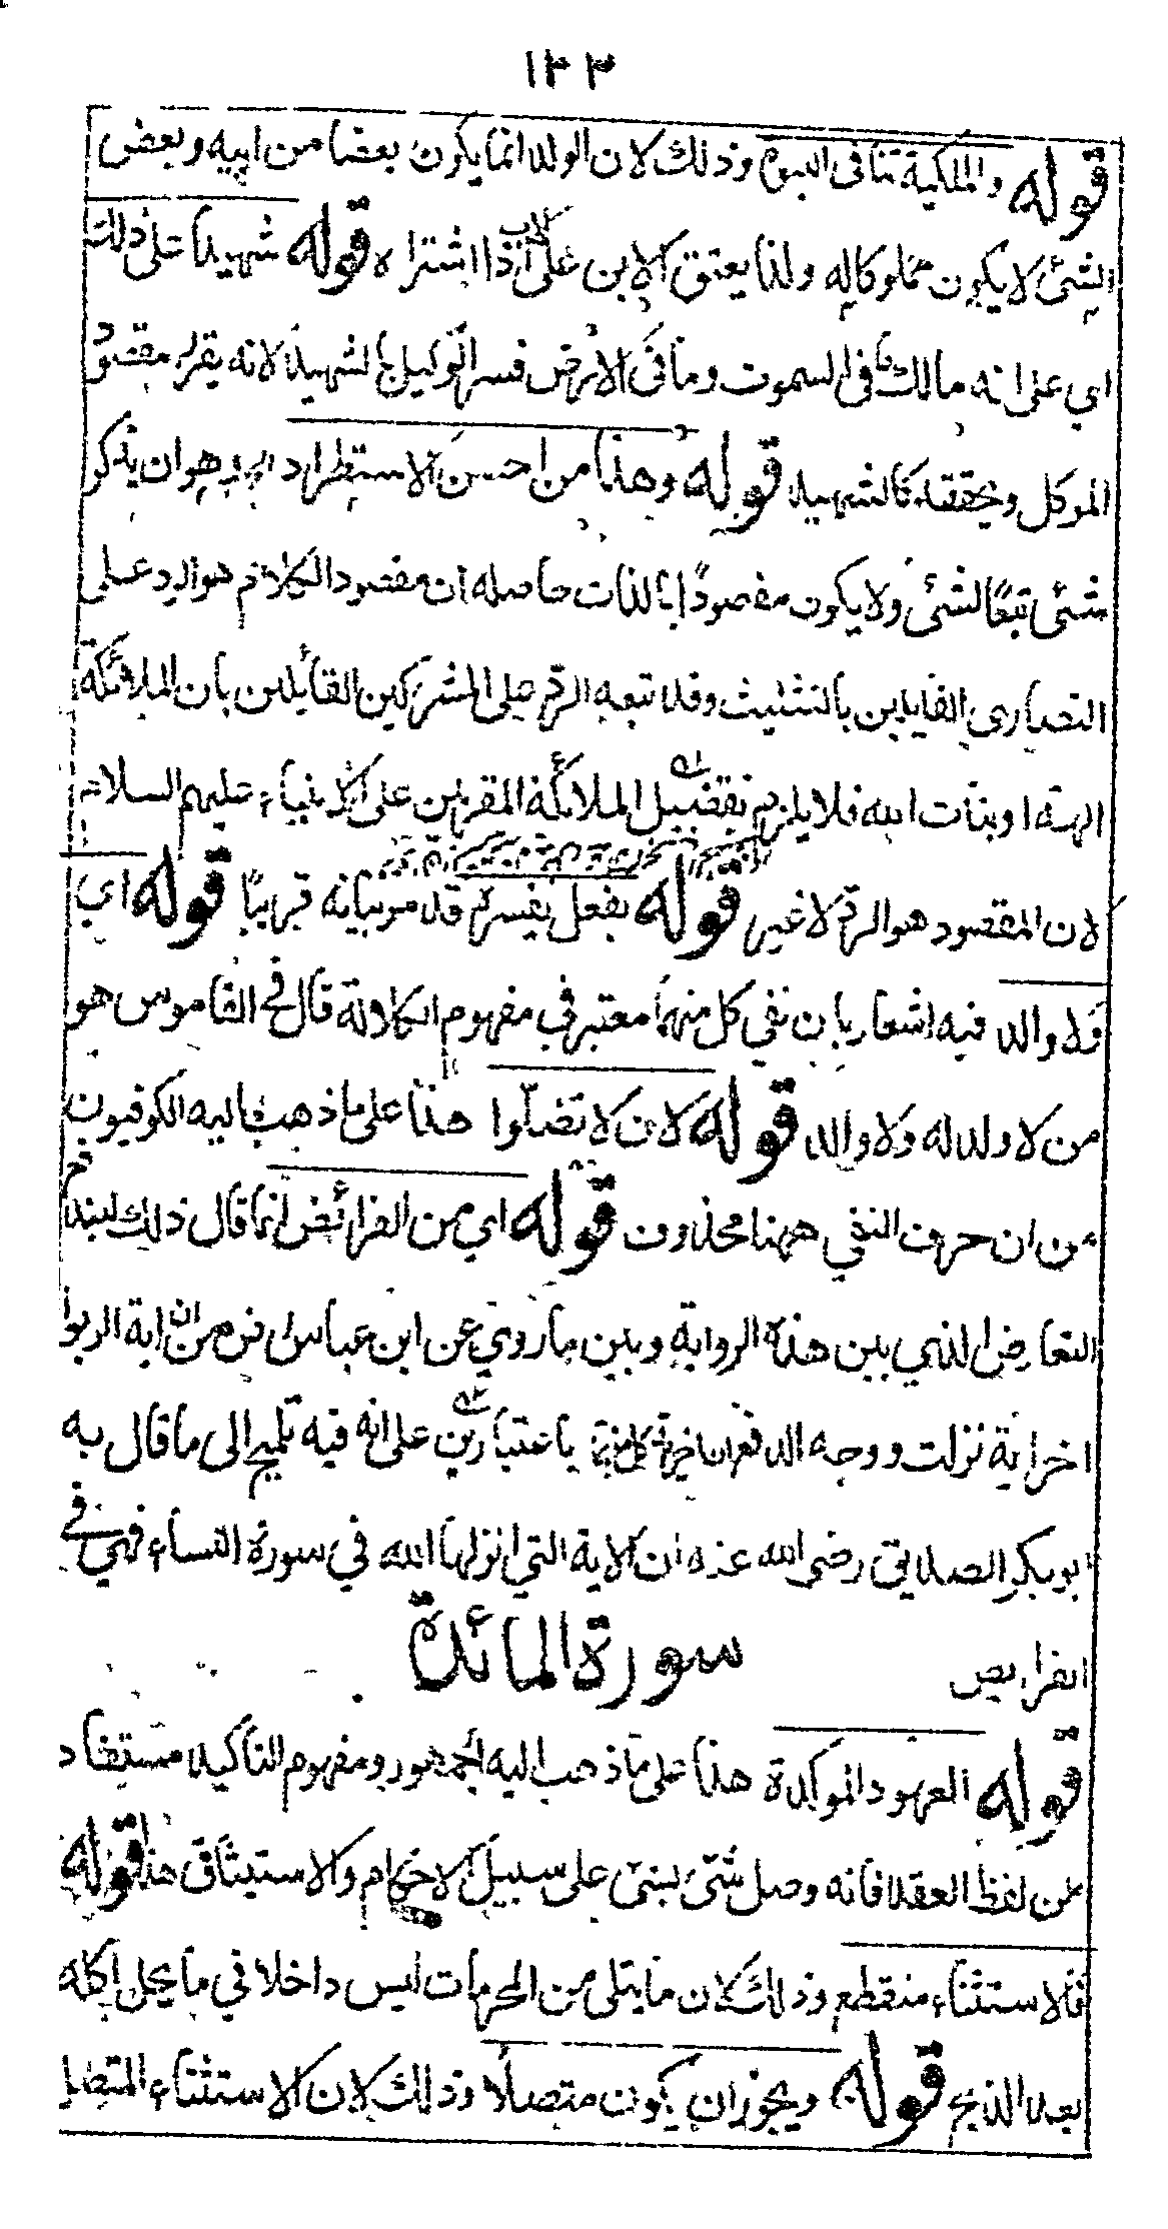 ١٣٣
قوله والملكية تنافى البنوة وذلك لان الولد انما يكون بعضا من ابيه وبعض
الشئ لا يكون مملوكا له ولذا يعتق الابن على الاب اذا اشتراه قوله شهيدا على ذلك
اي على انه مالك ما فى السموت وما فى الارض فسر الوكيل بالشهيد لانه يقرر مقصود
الموكل ويحققه كالشهيد قوله وهذا من احسن الاستطراد وهو ان يذكر
شئى تبعًا لشئ ولا يكون مقصودًا بالذات حاصله ان مقصود الكلام هو الرد على
النصارى القايلين بالتثليث وقد تبعه الرد على المشركين القائلين بان الملائكة
الهة او بنات الله فلا يلزم تفضيل الملائكة المقربين على الانبياء عليهم السلام
لان المقصود هو الرد لا غير قوله بفعل يفسره قد مر بيانه قريبًا قوله اي
ولا والد فيه اشعار بان نفي كل منهما معتبر في مفهوم الكلالة قال في القاموس هو
من لا ولد له ولا والد قوله لان لا تضلوا هذا على ما ذهب اليه الكوفيون
من ان حرف النفي ههنا محذوف قوله اي من الفرائض انما قال ذلك ليندفع
التعارض الذي بين هذه الرواية وبين ما روي عن ابن عباس من ان اية الربوا
اخر اية نزلت ووجه الدفع ان باعتبارين على انه فيه تلميح الى ما قال به
ابو بكر الصديق رضى الله عنه ان الاية التي انزلها الله في سورة النساء فهي في
الفرايض
سورة المائدة
قوله العهود الموكدة هذا على ما ذهب اليه الجمهور ومفهوم التاكيد مستفاد
من لفظ العقد فانه وصل شئى بشئى على سبيل الاحكام والاستيثاق هذا قوله
فالاستثناء منقطع وذلك لان ما يتلى من المحرمات ليس داخلا في ما يحل اكله
بعد الذبح قوله ويجوز ان يكون متصلا وذلك لان الاستثناء المتصل